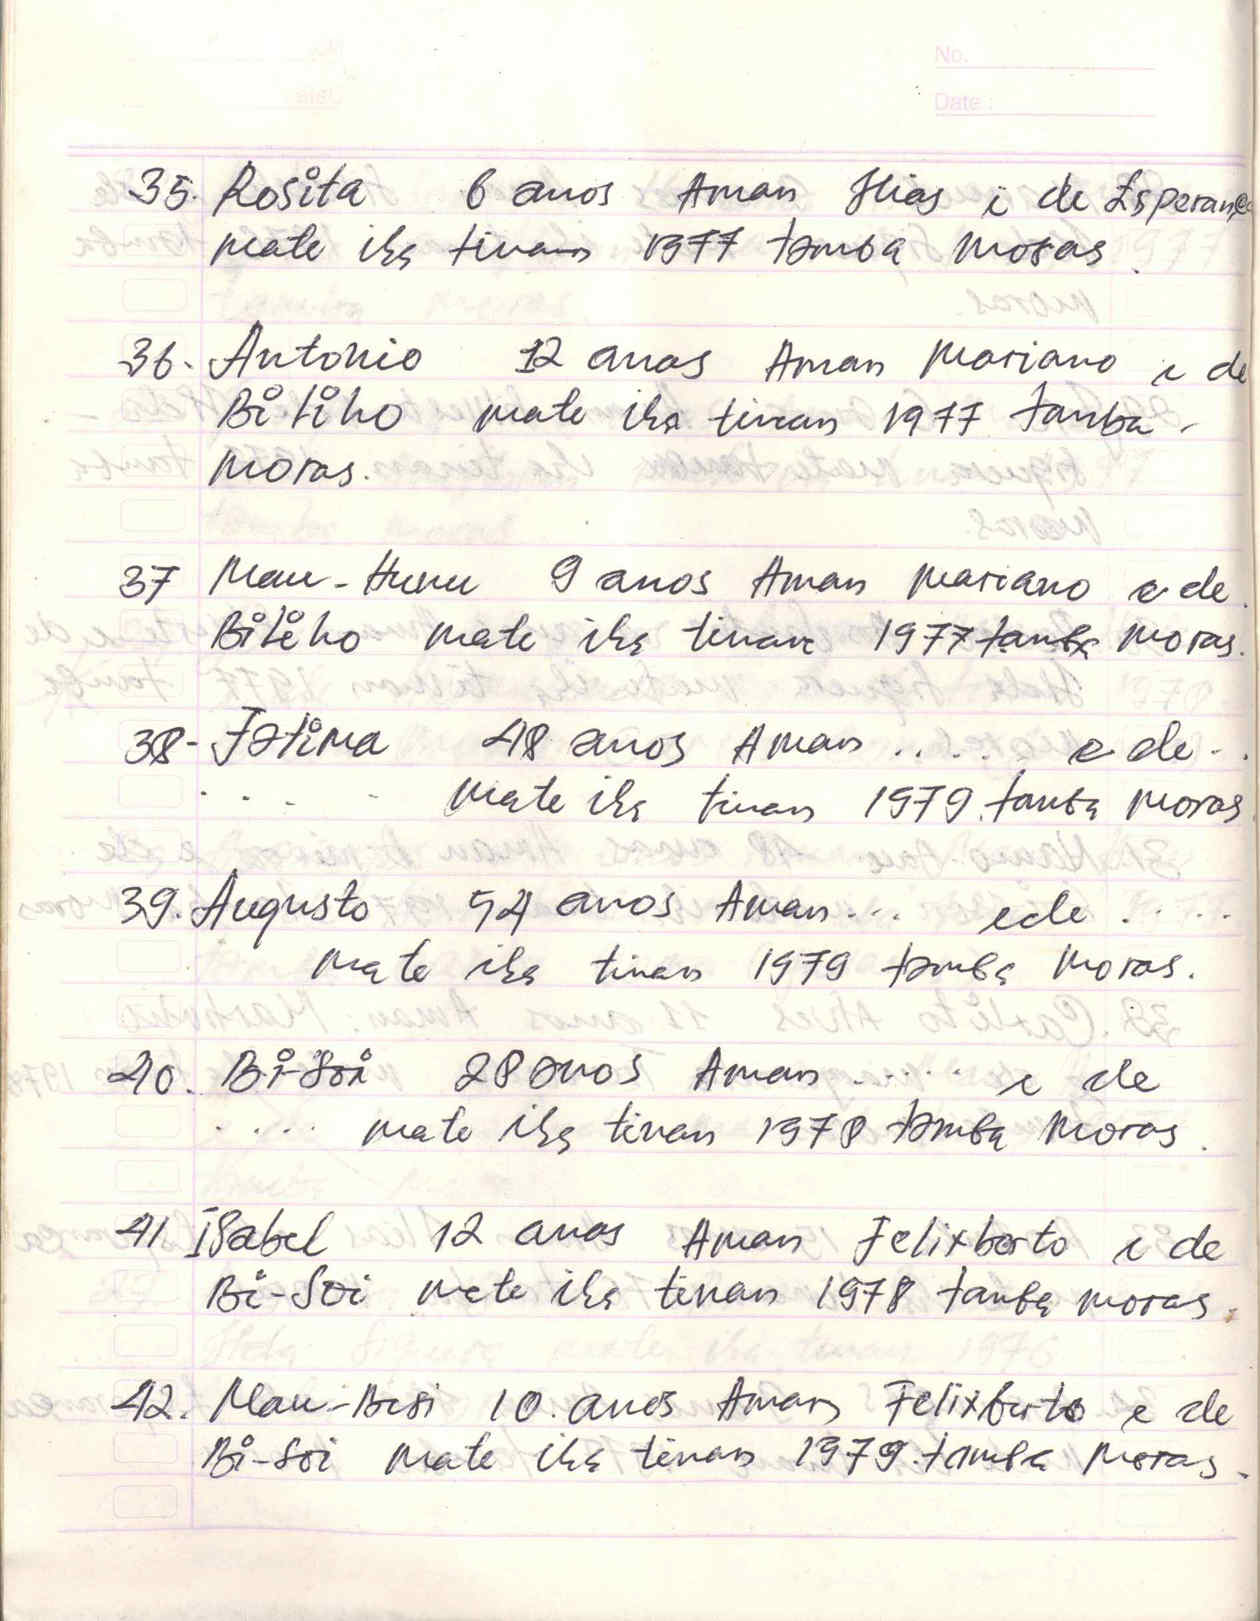 No.
Date :
35. Rosita 6 anos Aman Ilias i de Esperança
mate iha tinan 1977 tamba moras.
36. Antonio 12 anos Aman Mariano i de
Bi Liho mate iha tinan 1977 tamba
moras.
37 Mau-Hunu 9 anos Aman Mariano e de.
Biliho mate iha tinan 1977 tamba moras.
38- Fatima 48 anos Aman ..... e de..
.... mate iha tinan 1979. tamba moras
39. Augusto 54 anos Aman... e de .....
mate iha tinan 1979 tamba moras.
40. Bi-Soi 28 anos Aman ...... i de
..... mate iha tinan 1978 tamba moras.
41. Isabel 12 anos Aman Felixberto i de
Bi-Soi mate iha tinan 1978 tamba moras.
42. Mau-Besi 10. anos Aman Felixberto e de
Bi-Soi mate iha tinan 1979. tamba moras.